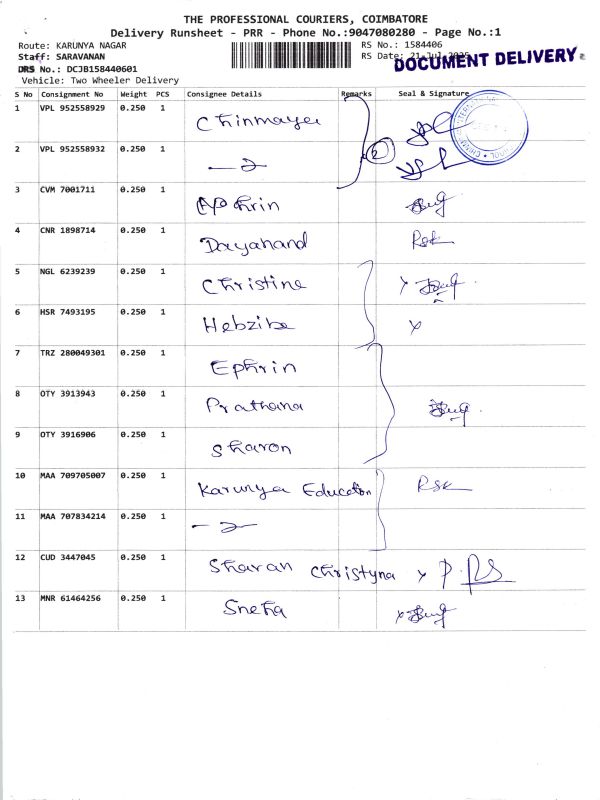 THE PROFESSIONAL COURIERS, COIMBATORE
Delivery Runsheet - PRR - Phone No.:9047080280 - Page No.:1
Route: KARUNYA NAGAR RS No.: 1584406
Staff: SARAVANAN RS Date: 21-Jul-2025
DOCUMENT DELIVERY
DRS No.: DCJB158440601
Vehicle: Two Wheeler Delivery
S No Consignment No Weight PCS Consignee Details Remarks Seal & Signature
1 VPL 952558929 0.250 1 Chinmaya
2 VPL 952558932 0.250 1 —2— 2
3 CVM 7001711 0.250 1 Ephrin
4 CNR 1898714 0.250 1 Dayanand Rsk
5 NGL 6239239 0.250 1 Christina x
6 HSR 7493195 0.250 1 Hebziba x
7 TRZ 280049301 0.250 1 Ephrin
8 OTY 3913943 0.250 1 Prathana
9 OTY 3916906 0.250 1 Sharon
10 MAA 709705007 0.250 1 Karunya Education Rsk
11 MAA 707834214 0.250 1 —2—
12 CUD 3447045 0.250 1 Sharan Christyna x
13 MNR 61464256 0.250 1 Sneha x